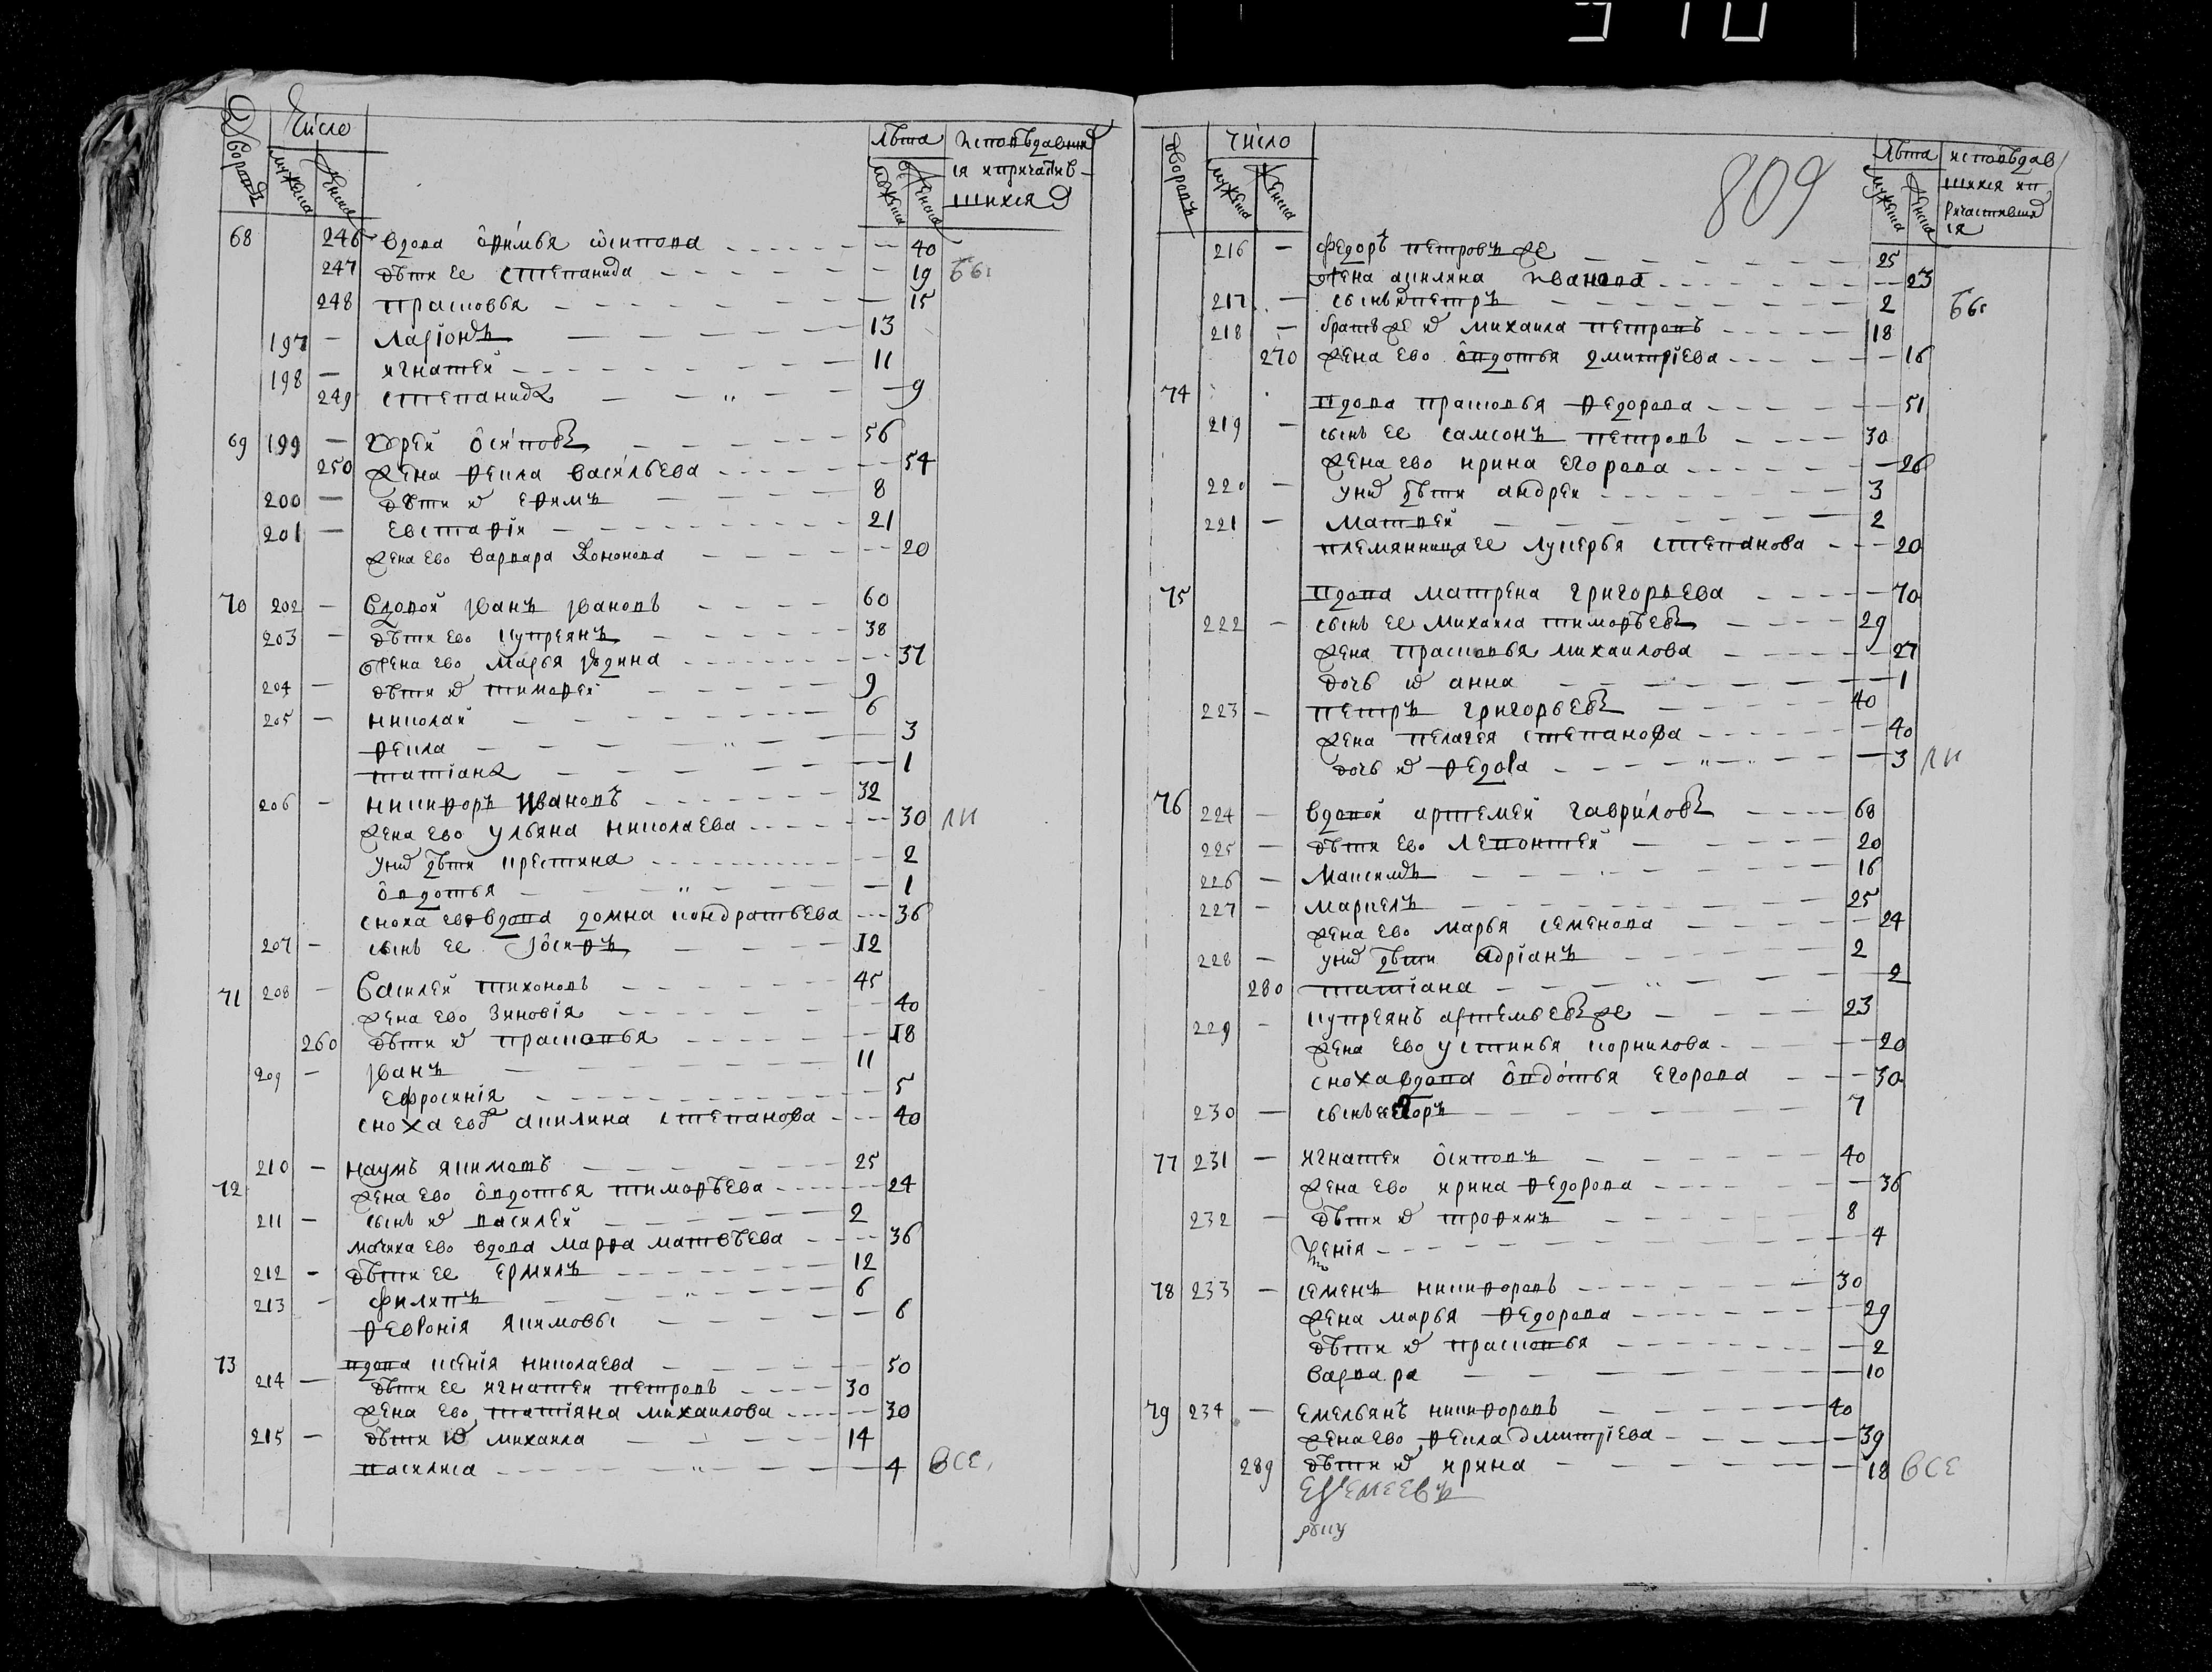 910
Дворовъ Число Лѣта Исповѣдавши
мужеска женска мужеска женска ся и причастив
шихся
68 246 вдова Офимья Осипова 40
247 дѣти ее Степанида 19 бы
248 Прасковья 15
197 — Ларіонъ 13
198 — Игнатей 11
249 Степанида 9
69 199 — Гурей Осиповъ 56
250 жена Фекла Васильева 54
200 — дѣти их Ефимъ 8
201 — Евстафій 21
жена ево Варвара Кононова 20
70 202 — Вдовой Иванъ Ивановъ 60
203 — дѣти ево Купреянъ 38
жена ево Марья 37
204 — дѣти их Тимофей 9
205 — Николай 6
Фекла 3
Татіана 1
206 — Никифоръ Ивановъ 32
жена ево Ульяна Николаева 30 ли
у них дѣти Крестина 2
Овдотья 1
сноха ево вдова Домна Кондратьева 36
207 — сынъ ее Іосифъ 12
71 208 — Василей Тихоновъ 45
жена ево Зиновія 40
260 дѣти их Прасковья 18
209 — Иванъ 11
Ефросинія 5
сноха ево Акилина Степанова 40
210 — Наумъ Якимовъ 25
72 жена ево Овдотья Тимофѣева 24
211 — сынъ их Василей 2
мачиха ево вдова Марфа Матвѣева 36
212 — дѣти ее Ермилъ 12
213 — Филипъ 6
Февронія Якимовы 6
73 вдова Ксенія Николаева 50
214 — дѣти ее Игнатей Петровъ 30
жена ево Татіяна Михаилова 30
215 — дѣти их Михаила 14
Василиса 4 все
809
Дворовъ Число Лѣта исповѣдав
мужеска женска мужеска женска шихся и п
ричастивши
ся
216 — Федоръ Петровъ же 25
жена Акилина Иванова 23
217 — сынъ их Петръ 2 бы
218 — братъ же их Михаила Петровъ 18
270 жена ево Овдотья Дмитріева 16
74 вдова Прасковья Федорова 51
219 — сынъ ее Самсонъ Петровъ 30
жена ево Ирина Егорова 26
220 — у них дѣти Андрей 3
221 — Матфей 2
племянница ее Лукерья Степанова 20
75 вдова Матрена Григорьева 70
222 — сынъ ее Михаила Тимофѣевъ 29
жена Прасковья Михаилова 27
дочь их Анна 1
223 — Петръ Григорьевъ 40
жена Пелагея Степанова 40
дочь их Федора 3 ли
76 224 — Вдовой Артемей Гавриловъ 68
225 — дѣти ево Левонтей 20
226 — Максимъ 16
227 — Маркелъ 25
жена ево Марья Семенова 24
228 — у них дѣти Адріанъ 2
280 Татіана 2
229 — Купреянъ Артемьевъ же 23
жена ево Устинья Корнилова 20
сноха вдова Овдотья Егорова 30
230 — сынъ ее Егоръ 7
77 231 — Игнатей Осиповъ 40
жена ево Ирина Федорова 36
232 — дѣти их Трофимъ 8
Ксенія 4
78 233 — Семенъ Никифоровъ 30
жена Марья Федорова 29
дѣти их Прасковья 2
Варвара 10
79 234 — Емельянъ Никифоровъ 40
жена ево Фекла Дмитріева 39
289 дѣти их Ирина 18 все
руку